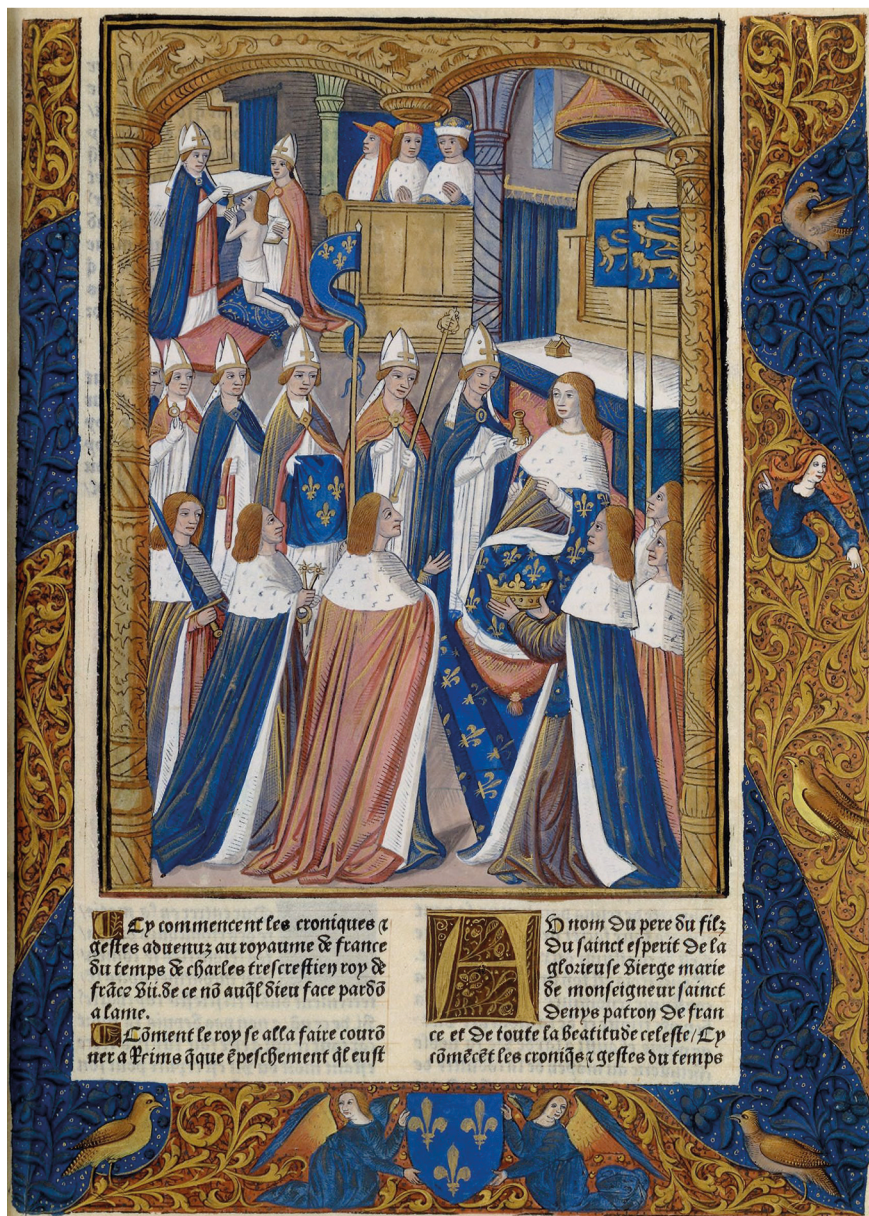 Cy commencent les croniques ⁊
gestes advenuz au royaume de france
du temps de charles trescrestien roy de
frāce vii. de ce nō auq̄l dieu face pardō
a lame.
Cōment le roy se alla faire courō
ner a Reims q̄que ēpeschement q̄l eust
AU nom du pere du filz
du sainct esperit de la
glorieuse vierge marie
de monseigneur sainct
Denys patron de fran
ce et de toute la beatitude celeste/Cy
cōmēcēt les croniq̄s ⁊ gestes du temps